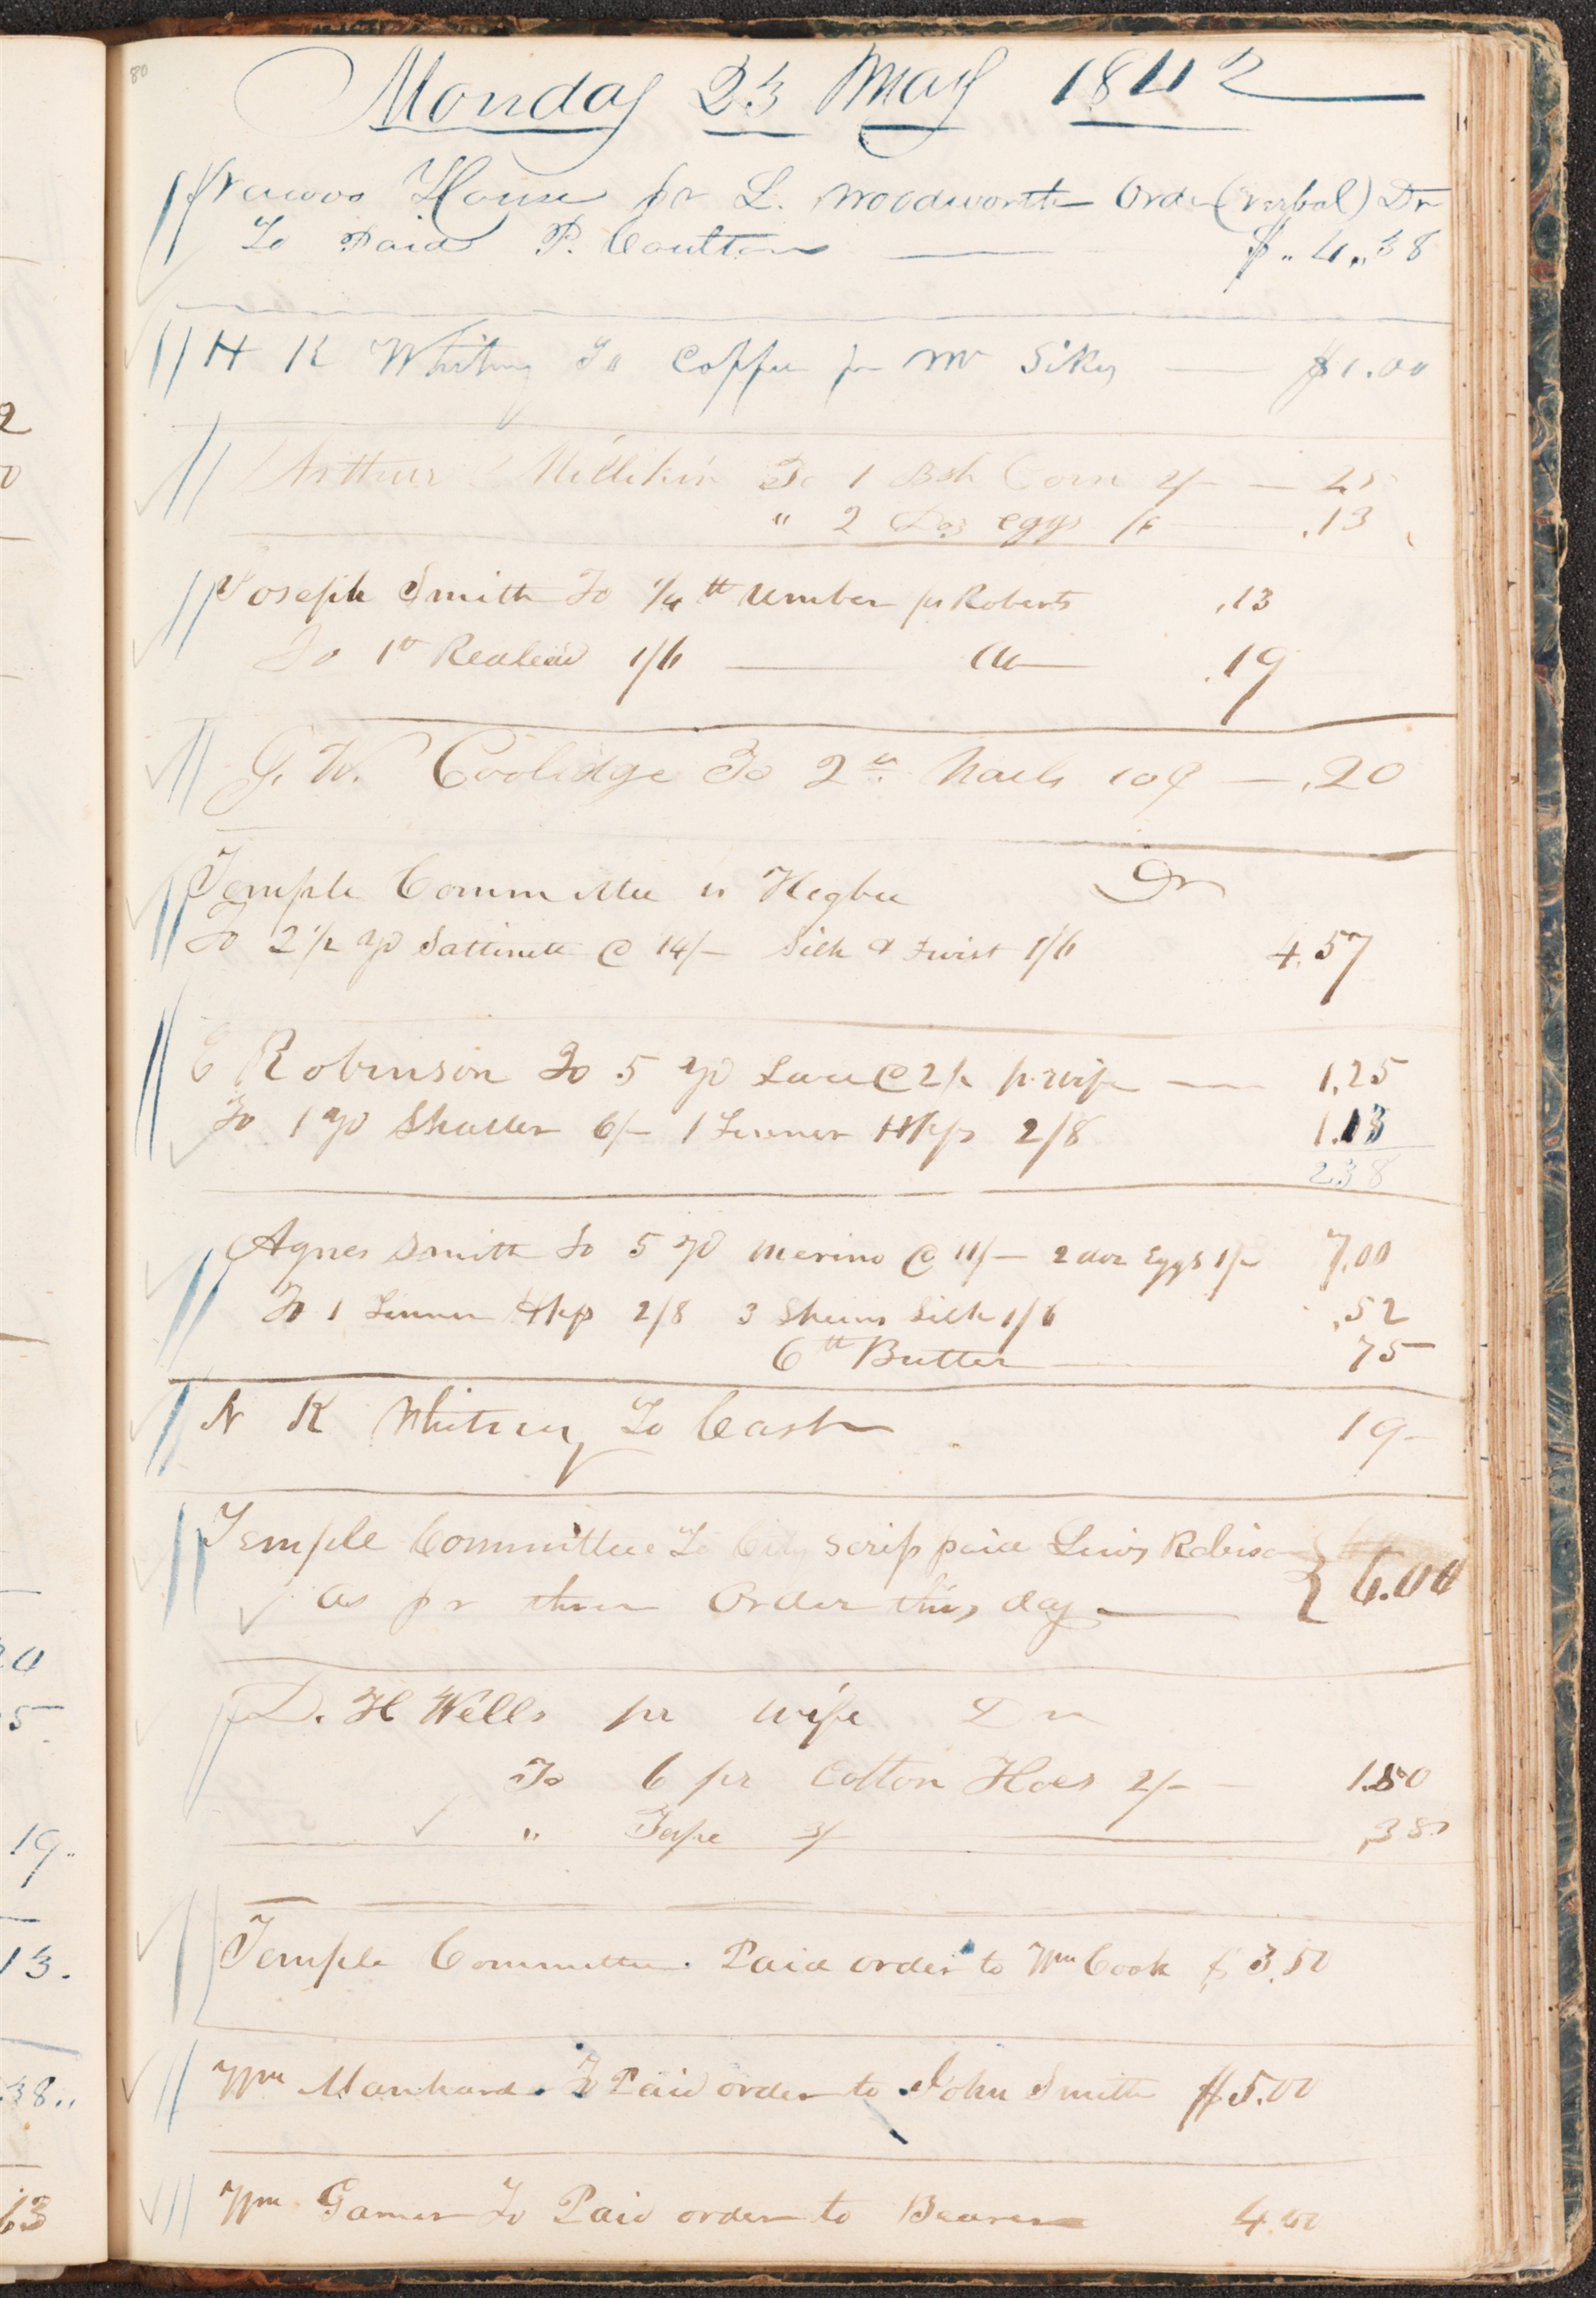 80
Monday 23 May 1842
Nauvoo House for L. Woodworth Order (verbal) Dr
To Paid P. Coulton $ .. 4 .. 38
N K Whitney To Coffee for Mr Sikes $1.00
Arthur Millikin To 1 Bsh Corn 2/- 25
" 2 Doz eggs /6 .13
Joseph Smith To 1/4 tt Umber pr Roberts .13
To 1 tt Redlead 1/6 .19
G. W. Coolidge To 2 tt Nails 10¢ .20
Temple Committee Higbee Dr
To 2 1/2 yd Sattinett @ 14/- Silk & Twist 1/6 4.57
E Robinson To 5 yd Lace @ 2/- pr wife 1.25
To 1 yd 6/- 1 Linnen Hkf 2/8 1.13
2.38
Agnes Smith To 5 yd Merino @ 11/- 2 doz Eggs 1/- 7.00
To 1 Linnen Hkf 2/8 3 Skeins Silk 1/6 .52
6 tt Butter 75
N K Whitney To Cash 19
Temple Committee To City Scrip paid Lewis Robison
as pr their Order this day 6.00
D. H Wells pr wife Dr
To 6 pr Cotton Hoes 2/- 1.50
" Tape 3/ .38
Temple Committee. Paid order to Wm Cook $ 3.50
Wm Manhard. To Paid order to John Smith $5.00
Wm Garner To Paid order to Bearer 4.00